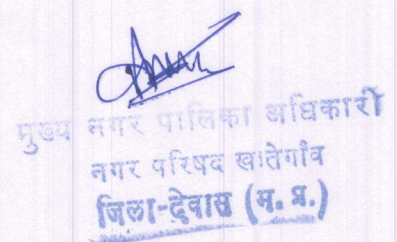 मुख्य नगर पालिका अधिकारी
नगर परिषद खातेगाँव
जिला-देवास (म. प्र.)